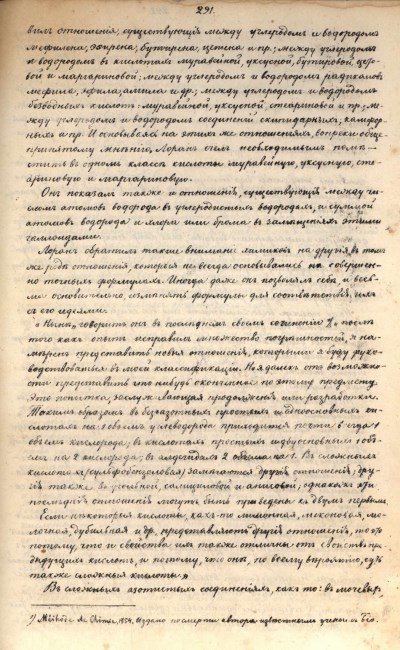 291.
вилъ отношенія, существующія между углеродомъ и водородомъ
метилена, этирена, бутирена, цетена и пр.; между углеродомъ
и водородомъ въ кислотахъ муравьиной, уксусной, бутировой, цети-
вой и маргариновой; между углеродомъ и водородомъ радикаловъ
метила, этила, амила и др.; между углеродомъ и водородомъ
безводныхъ кислотъ: муравьиной, уксусной, стеариновой и пр.; ме-
жду углеродомъ и водородомъ соединеній скипидарныхъ, камфор-
ныхъ и пр. И основываясь на этихъ же отношеніяхъ, вопреки обще-
принятому мнѣнію, Лоранъ счелъ необходимымъ помѣ-
стить въ одномъ классѣ кислоты муравьиную, уксусную, сте-
ариновую и маргариновую.
Онъ показалъ также и отношенія, существующія между чи-
сломъ атомовъ водорода въ углеродистыхъ водородахъ, и суммой
атомовъ водорода и хлора или брома въ замѣщеніяхъ этими
галоидами.
Лоранъ обратилъ также вниманіе химиковъ на другія, въ томъ
же родѣ отношенія, которыя не всегда основывались на совершен-
но точныхъ формулахъ. Иногда даже онъ позволялъ себѣ, и весь-
ма основательно, измѣнять формулы для соотвѣтствія ихъ
съ его идеями.
«Нынѣ, говоритъ онъ въ послѣднемъ своемъ сочиненіи ¹/, послѣ
того какъ опытъ исправилъ множество погрѣшностей, я на-
мѣренъ представить новыя отношенія, которыми я буду руко-
водствоваться въ моей классификаціи. Но я далекъ отъ возможно-
сти представить что нибудь оконченное по этому предмету.
Это попытка, заслуживающая продолженія или разработки.
Такимъ образомъ въ безазотныхъ простыхъ одноосновныхъ ки-
слотахъ на 1 объемъ углеводорода приходится почти всегда 1
объемъ кислорода; въ кислотахъ простыхъ и двуосновныхъ 1 объ-
емъ на 2 кислорода; въ алдегидахъ 2 объема на 1. Въ сложныхъ
кислотахъ (сульфобензоловая) замѣчаются другія отношенія; дру-
гія также въ салициловой и анисовой; однакожъ эти
послѣднія отношенія могутъ быть приведены къ двумъ первымъ.
Если нѣкоторыя кислоты, какъ-то лимонная, меконовая, мо-
лочная, дубильная и др. представляютъ другія отношенія, то это
потому, что и свойства ихъ также отличны отъ свойствъ пре-
дыдущихъ кислотъ, и потому, что онѣ, по всему вѣроятію, суть
также сложныя кислоты.»
Въ сложныхъ азотистыхъ соединеніяхъ, какъ то: въ мочевы-
¹) Méthode de Chimie, 1854. Издано по смерти автора извѣстнымъ ученымъ Біо.